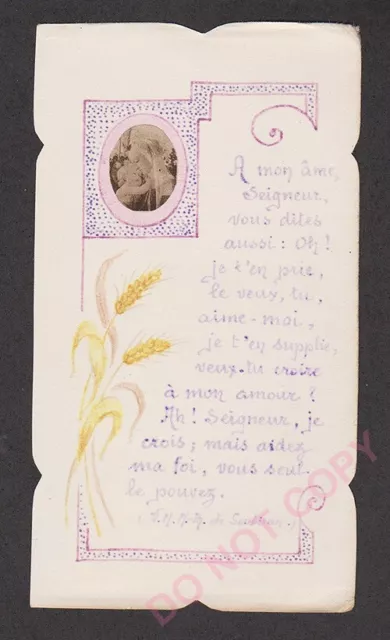 A mon âme,
Seigneur,
vous dites
aussi : Oh !
je t'en prie,
le veux, tu,
aime-moi,
je t'en supplie,
veux-tu croire
à mon amour ?
Ah ! Seigneur, je
crois ; mais aidez
ma foi, vous seul
le pouvez.
de
DO NOT COPY